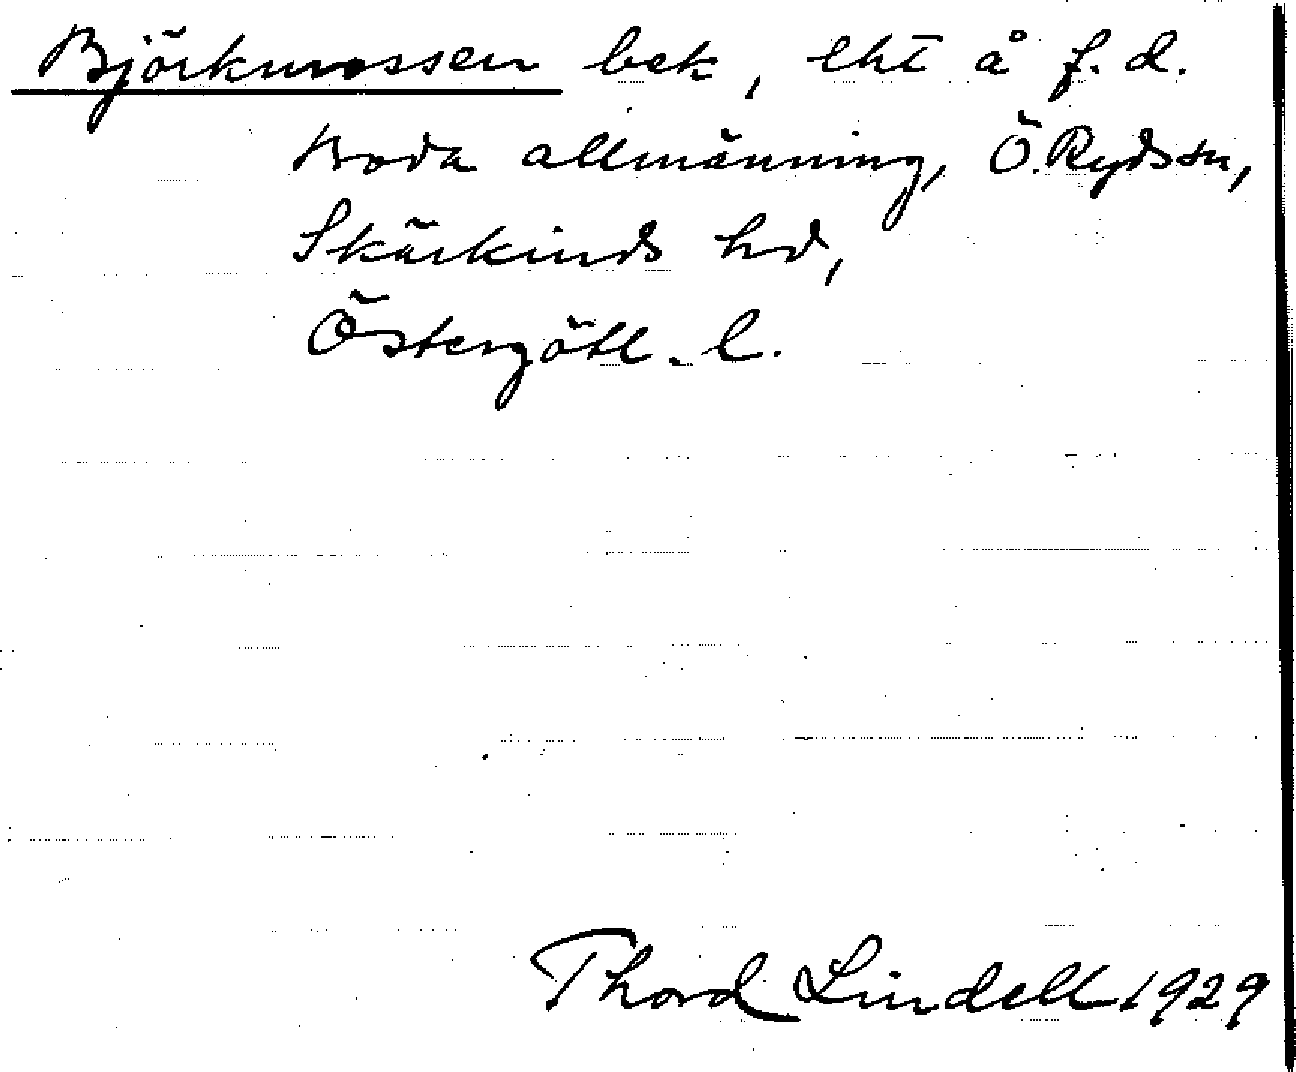 Björkmossen bek, lht å f.d.
Broda allmänning, Ö. Ryds sn,
Skärkinds hd,
Östergötl. l.
Thord Lindell 1929